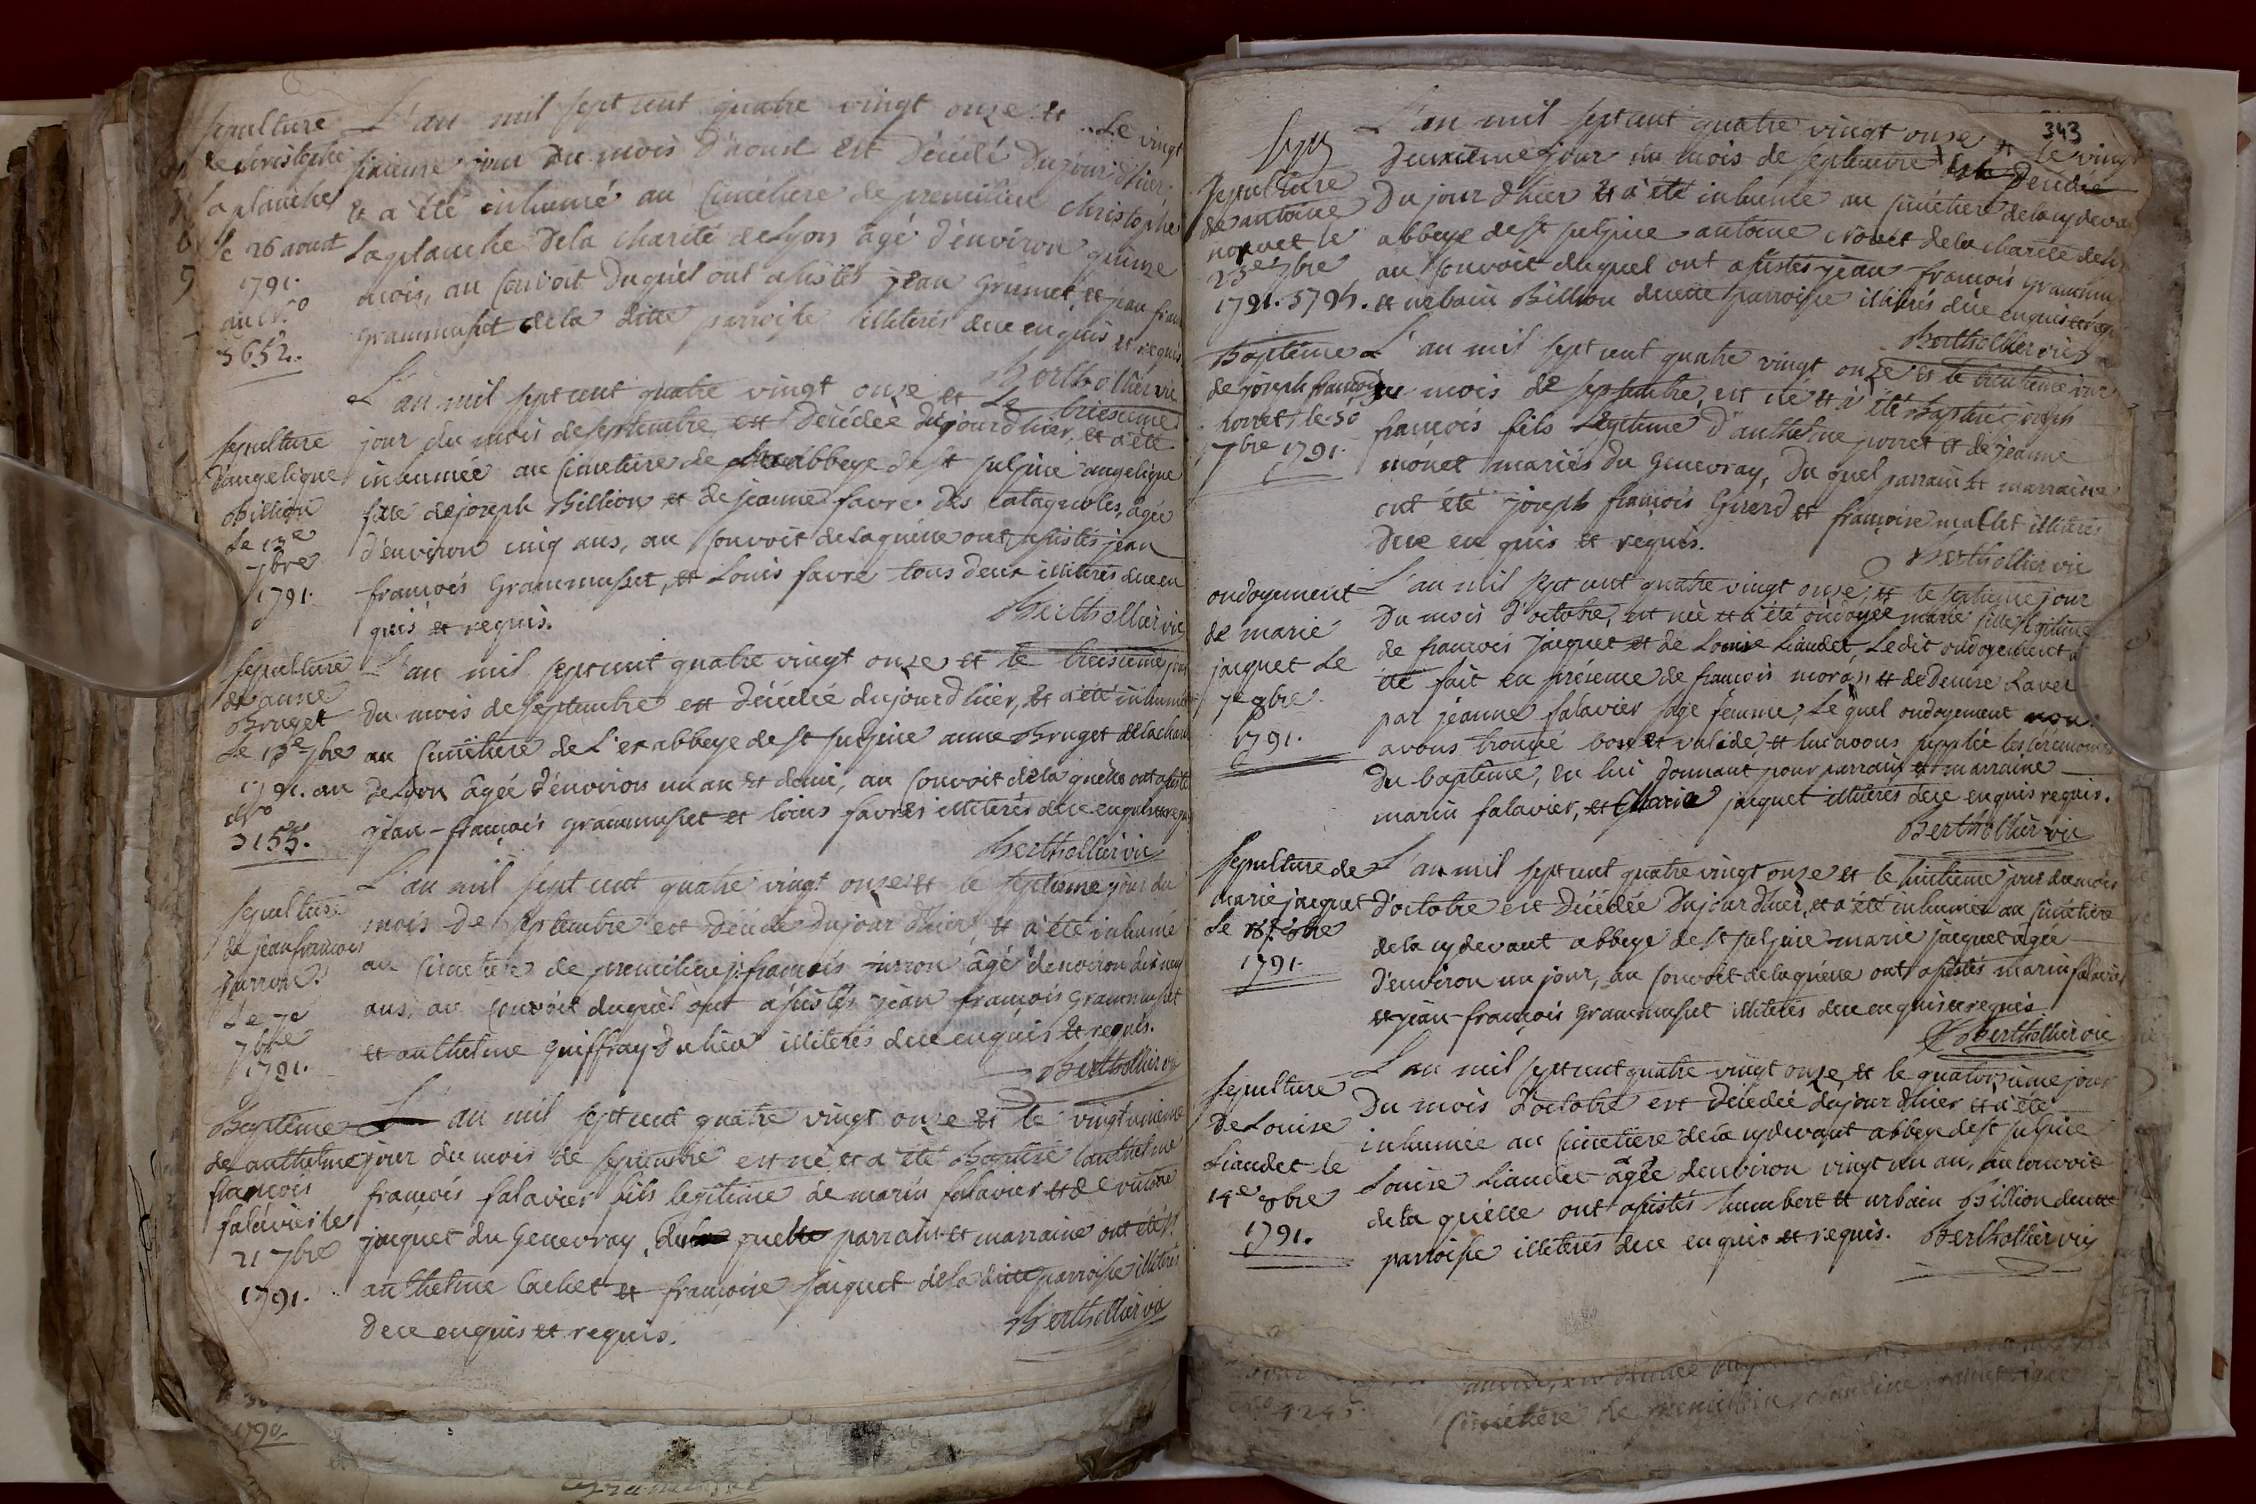 sepulture
de christophe
laplanche
le 26 aoust
1791.
au N.o
3652.
L'an mil sept cent quatre vingt onze et le vingt
sixieme jour du mois d'aoust est décédé du jour d'hier
et a été inhumé au cimetiere de premilieu christophe
laplanche de la charité de Lyon âgé d'environ quinze
mois, au convoit duquel ont assistés jean Grumet et jean fran
grammusset de la ditte parroisse illiterés de ce enquis et requis
Berthollier vic
sepulture
d'angelique
Billion
le 13e
7bre
1791.
L'an mil sept cent quatre vingt onze et le treisieme
jour du mois de septembre est décédée du jour d'hier, et a été
inhumée au cimetiere de abbeye de st sulpice angelique
fille de joseph Billion et de jeanne favre des catagnoles, âgée
d'environ cinq ans, au convoit de laquelle ont assistés jean
françois Grammusset, et Louis favre tous deux illiterés de ce en
quis et requis.
Berthollier vic
sepulture
de anne
Bruget
le 13e 7bre
1791. au
No
3155.
L'an mil sept cent quatre vingt onze et le treisieme jour
du mois de septembre est décédée du jour d'hier, et a été inhumée
au cimetiere de l'ex abbeye de st sulpice anne Bruget de la charité
de Lyon âgée d'environ un an et demi, au convoit de la quelle ont assistés
jean-françois grammusset et loüis favre illiterés de ce enquis et requis
Berthollier vic
sepulture
de jean françois
jurron
le 7e
7bre
1791.
L'an mil sept cent quatre vingt onze et le septieme jour du
mois de septembre est décédé du jour d'hier, et a été inhumé
au cimetiere de premilieu j. françois jurron âgé d'environ dix neuf
ans, au convoit duquel ont assistés jean françois Grammusset
et anthelme Guiffray du lieu illiterés de ce enquis et requis.
Berthollier vic
Baptême
de anthelme
françois
falavier le
21 7bre
1791.
L'an mil sept cent quatre vingt onze et le vingtunieme
jour du mois de septembre est né, et a été Baptisé anthelme
françois falavier fils legitime de marin falavier et de
jaquet du Genevray, du quel parrain et marraine ont été
anthelme Cachet et françoise jaiquet de la ditte parroisse illiterés
de ce enquis et requis.
Berthollier vic
1790
343
sepulture
de antoine
nouet le
23e 7bre
1791. 5794.
L'an mil sept cent quatre vingt onze et le vingt
deuxieme jour du mois de septembre est décédé
du jour d'hier et a été inhumé au cimetiere de la cy devant
abbeye de st sulpice antoine nouet de la charité de
au convoit duquel ont assistés jean françois grammu
et urbain Billion de cette parroisse illiterés de ce enquis et req
Berthollier vic
Baptême
de joseph françois
porret le 30
7bre 1791.
L'an mil sept cent quatre vingt onze et le trentieme jour
du mois de septembre, est né et a été Baptisé joseph
françois fils legitime d'anthelme porret et de jeanne
monet mariés du Genevray, du quel parrain et marraine
ont été joseph françois Girerd et françoise mallet illiterés
de ce en quis et requis.
Berthollier vic
ondoyement
de marie
jacquet le
7e 8bre
1791.
L'an mil sept cent quatre vingt onze, et le septieme jour
du mois d'octobre, est née et a été ondoyée marie fille legitime
de françois jacquet et de Louise Liaudet, Ledit ondoyement a
été fait en présence de françois moran et de Denise Ravet
par jeanne falavier sage femme, Le quel ondoyement nous
avons trouvé bon et valide, et lui avons supplée les cérémonies
du baptême, en lui donnant pour parrain et marraine
marin falavier, et Marie jacquet illiterés de ce enquis requis.
Berthollier vic
sepulture de
marie jacquet
le 8e 8bre
1791.
L'an mil sept cent quatre vingt onze et le huitieme jour du mois
d'octobre est décédée du jour d'hier, et a été inhumée au cimetiere
de la cy devant abbeye de st sulpice marie jacquet agée
d'environ un jour, au convoit de laquelle ont assistés marin falavier
et jean-françois Grammusset illiterés de ce enquis et requis.
Berthollier vic
sepulture
de Louise
Liaudet le
14e 8bre
1791.
L'an mil sept cent quatre vingt onze, et le quatorsieme jour
du mois d'octobre est décedée du jour d'hier et a été
inhumée au cimetiere de la cy devant abbeye de st sulpice
Louise Liaudet âgée d'environ vingt un an, au convoit
de la quelle ont assistés humbert et urbain Billion de cette
parroisse illiterés de ce enquis et requis. Berthollier vic
cimetiere de premilieu